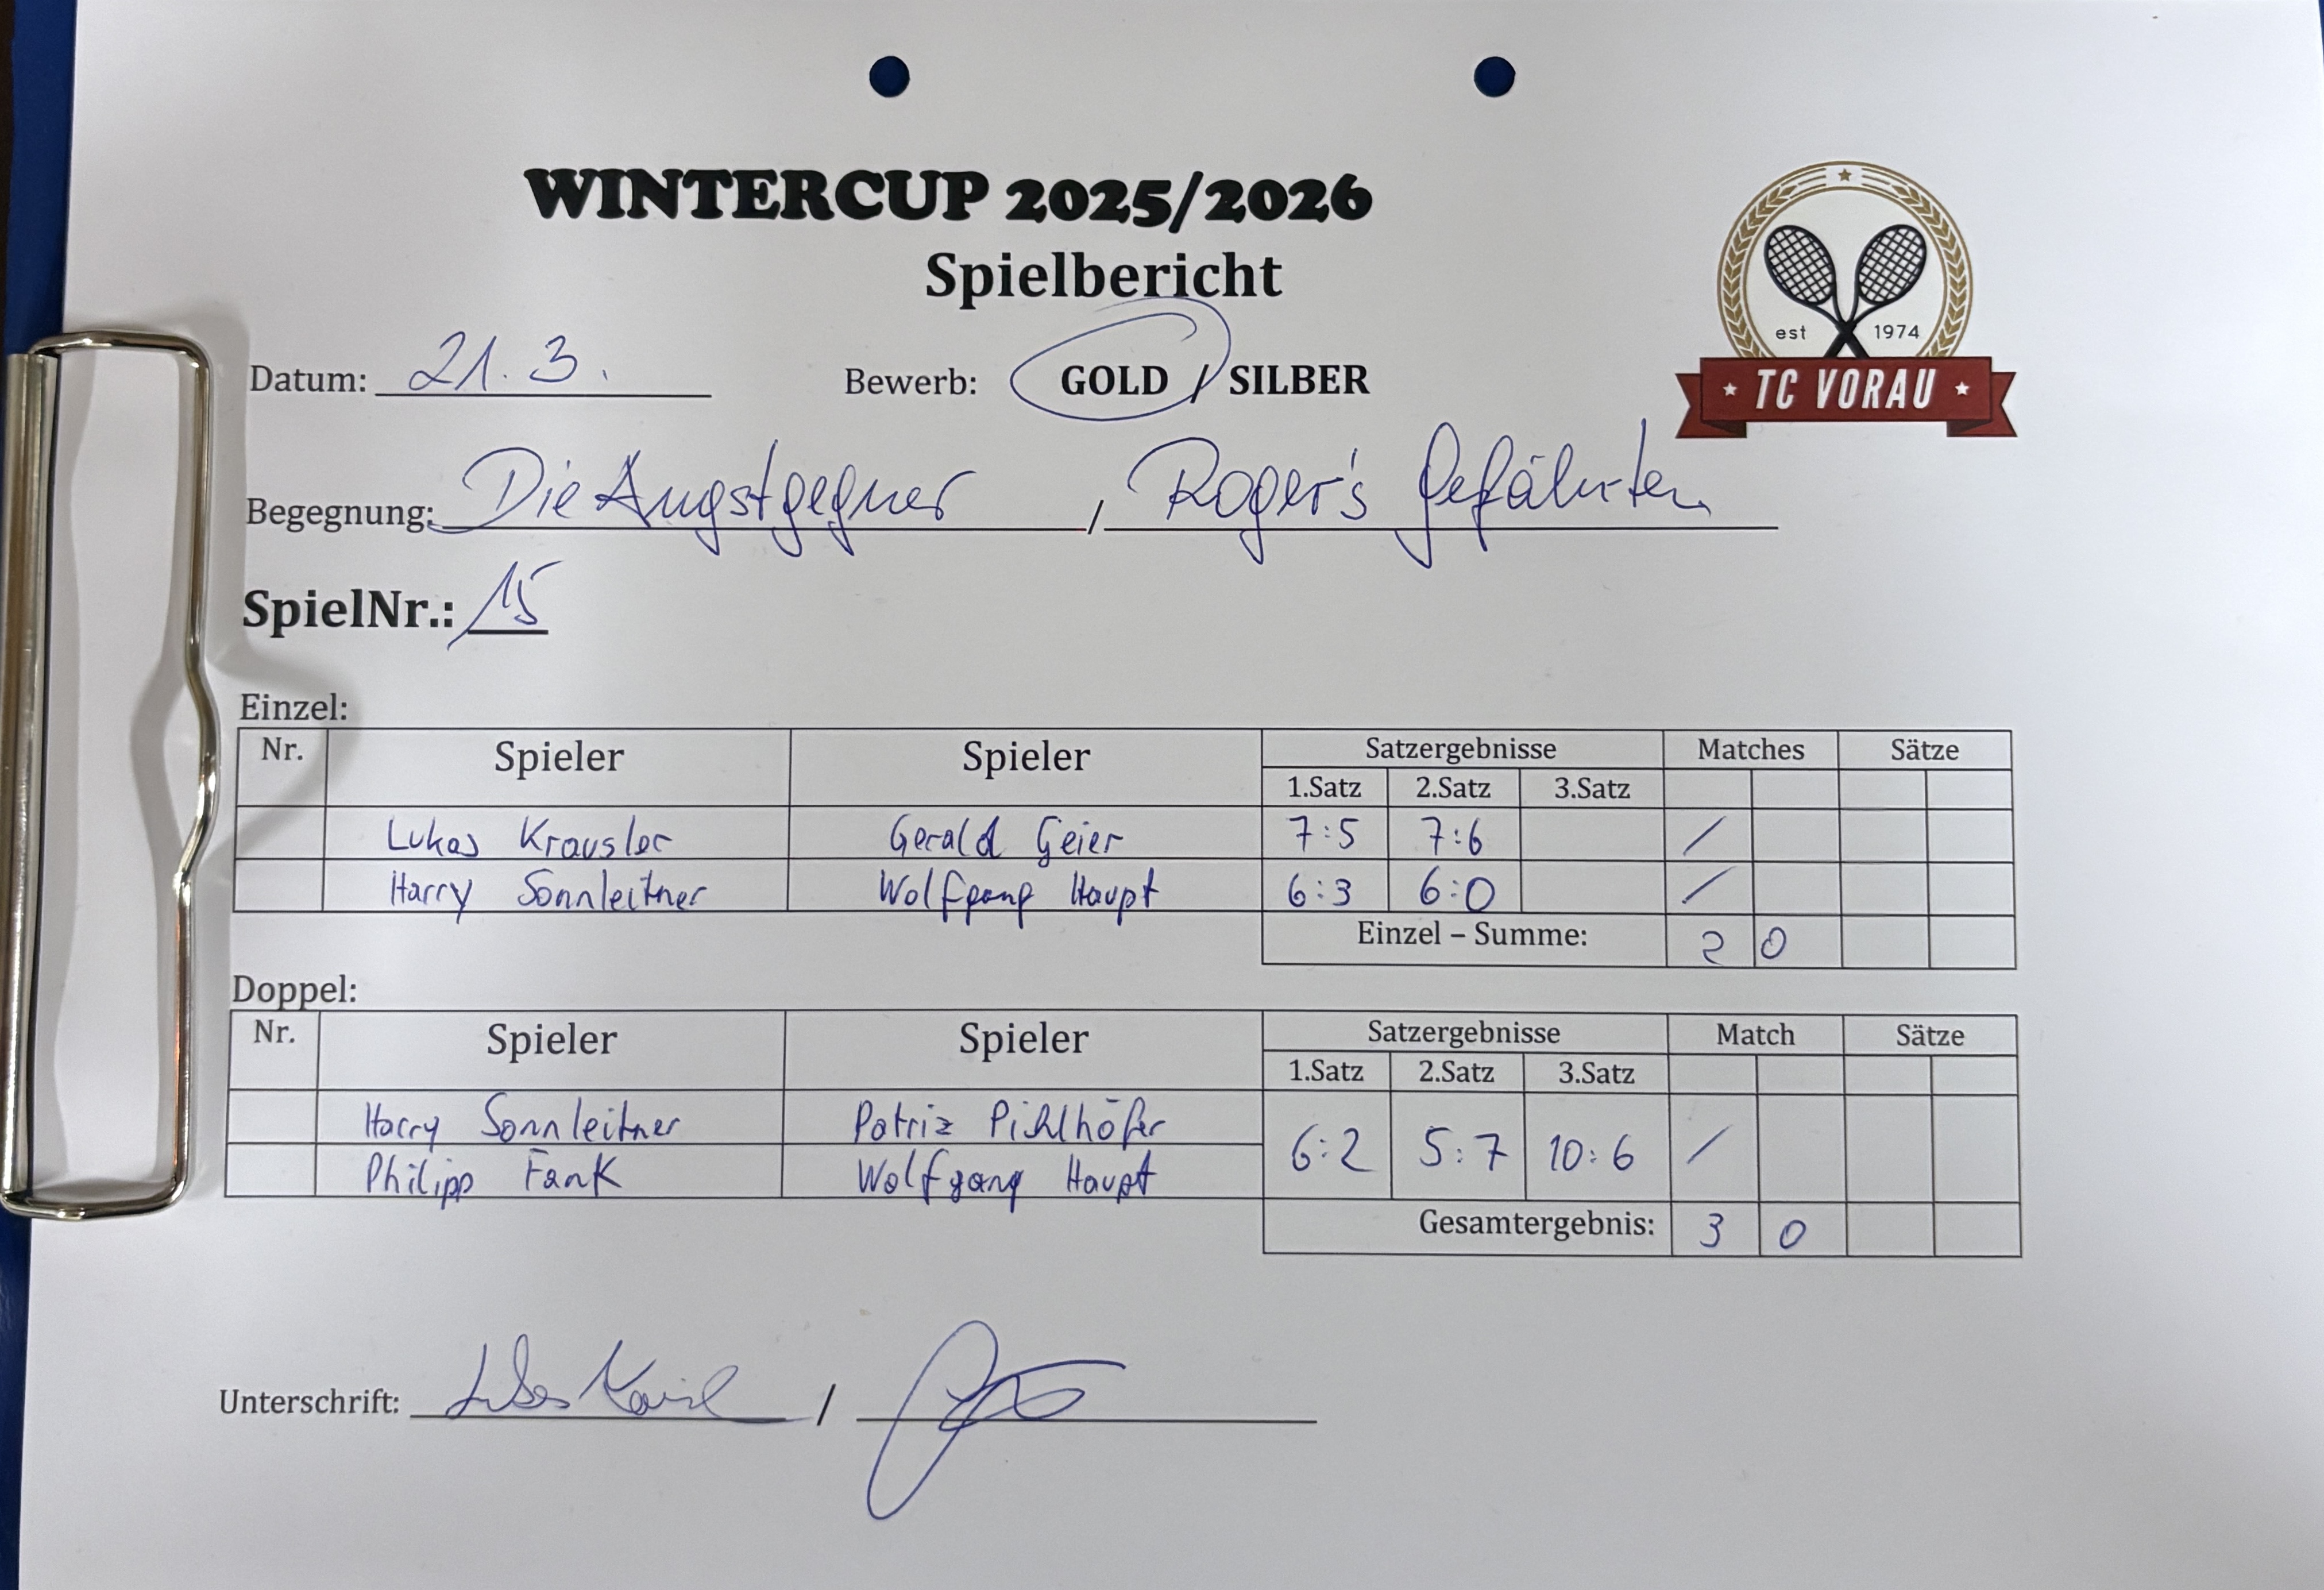 WINTERCUP 2025/2026
Spielbericht
est 1974
TC VORAU
Datum: 21.3. Bewerb: GOLD / SILBER
Begegnung: Die Angstgegner / Roger's Gefährten
SpielNr.: 15
Einzel:
Nr. Spieler Spieler Satzergebnisse Matches Sätze
1.Satz 2.Satz 3.Satz
Lukas Krausler Gerald Geier 7:5 7:6 /
Harry Sonnleitner Wolfgang Haupt 6:3 6:0 /
Einzel – Summe: 2 0
Doppel:
Nr. Spieler Spieler Satzergebnisse Match Sätze
1.Satz 2.Satz 3.Satz
Harry Sonnleitner Patriz Pichlhöfer
6:2 5:7 10:6 /
Philipp Fank Wolfgang Haupt
Gesamtergebnis: 3 0
Unterschrift: /